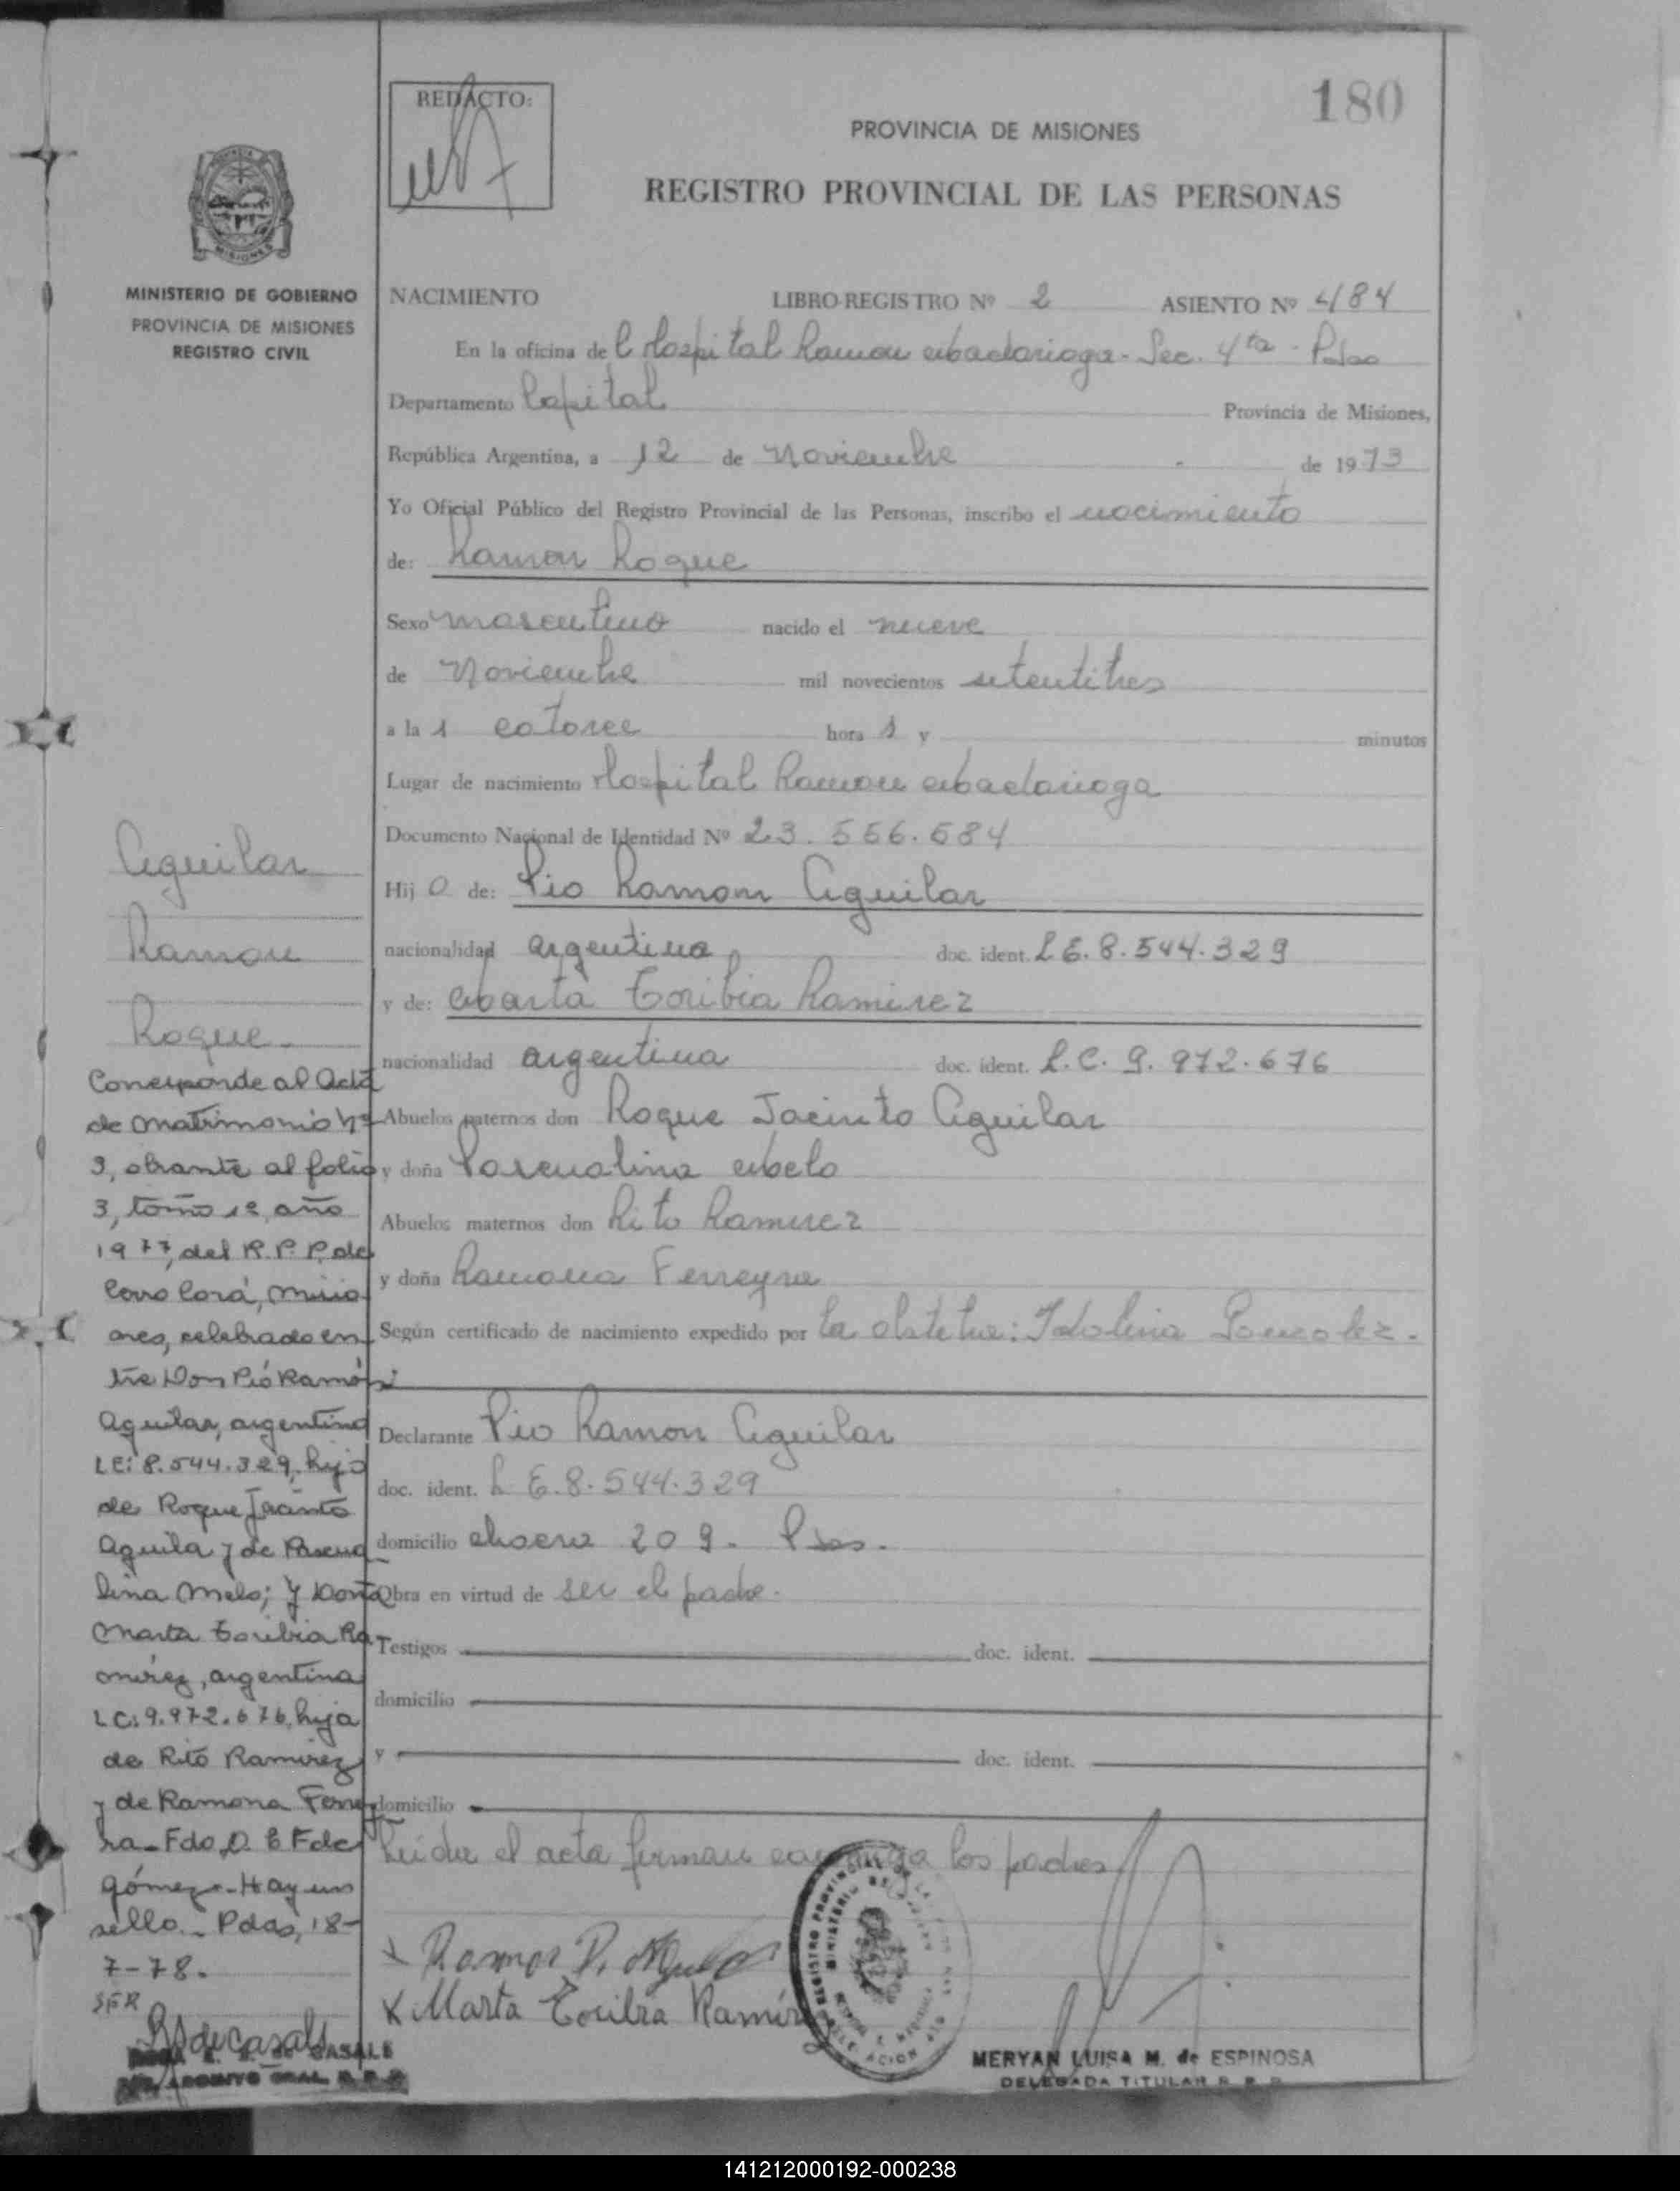 180
REDACTO:
PROVINCIA DE MISIONES
REGISTRO PROVINCIAL DE LAS PERSONAS
MINISTERIO DE GOBIERNO
PROVINCIA DE MISIONES
REGISTRO CIVIL
NACIMIENTO LIBRO-REGISTRO Nº 2 ASIENTO Nº 4184
En la oficina del Hospital Ramon Madariaga - Sec. 4ta - Pdas
Departamento Capital Provincia de Misiones,
República Argentina, a 12 de Noviembre de 1973
Yo Oficial Público del Registro Provincial de las Personas, inscribo el nacimiento
de: Ramon Roque
Sexo masculino nacido el nueve
de Noviembre mil novecientos setentitres
a las catorce horas y minutos
Lugar de nacimiento Hospital Ramon Madariaga
Documento Nacional de Identidad Nº 23.556.584
Hijo de: Pio Ramon Aguilar
nacionalidad argentina doc. ident. L E. 8.544.329
y de: Marta Toribia Ramirez
nacionalidad argentina doc. ident. L.C. 9.972.676
Abuelos paternos don Roque Jacinto Aguilar
y doña Pascualina Melo
Abuelos maternos don Rito Ramirez
y doña Ramona Ferreyra
Según certificado de nacimiento expedido por la obstetra: Idolina Gonzalez.
Declarante Pio Ramon Aguilar
doc. ident. L E. 8.544.329
domicilio chacra 209. Pdas.
Obra en virtud de ser el padre.
Testigos doc. ident.
domicilio
y doc. ident.
domicilio
Leida el acta firman conmigo los padres
x Ramon P. Aguilar
x Marta Toribia Ramirez
MERYAN LUISA M. de ESPINOSA
DELEGADA TITULAR R. P. P.
Aguilar
Ramon
Roque.
Corresponde al Acta
de Matrimonio nº
3, obrante al folio
3, tomo 1º, año
1977, del R.P.P. de
Cerro Corá, Misio
ones, celebrado en
tre Don Pió Ramón
Aguilar, argentino
LE: 8.544.329, hijo
de Roque Jacinto
Aguila y de Pascua
lina Melo; y Doña
Marta Toribia Ra
mirez, argentina
LC: 9.972.676, hija
de Rito Ramirez
y de Ramona Ferrey
ra - Fdo. D. E. F de
Gómez - Hay un
sello. - Pdas, 18-
7-78.
SFR
RSdeCasals
CASALE
ARCHIVO GRAL. R. P. P.
141212000192-000238